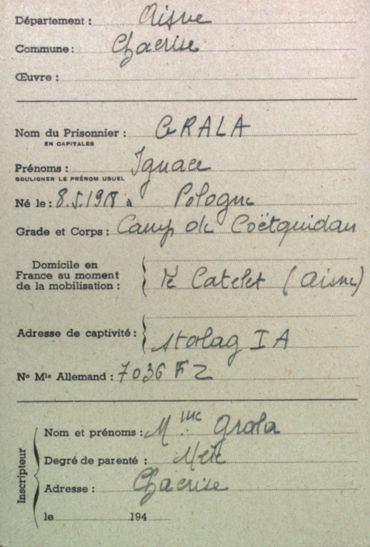 Département : Aisne
Commune : Chacrise
Œuvre :
Nom du Prisonnier : GRALA
EN CAPITALES
Prénoms : Ignace
SOULIGNER LE PRÉNOM USUEL
Né le : 8.5.1918 à Pologne
Grade et Corps : Camp de Coëtquidan
Domicile en
France au moment
de la mobilisation : Le Catelet (Aisne)
Adresse de captivité : Stalag I A
Nº Mle Allemand : 7036 F 2
Inscripteur
Nom et prénoms : Mme Grala
Degré de parenté : Mère
Adresse : Chacrise
le 194